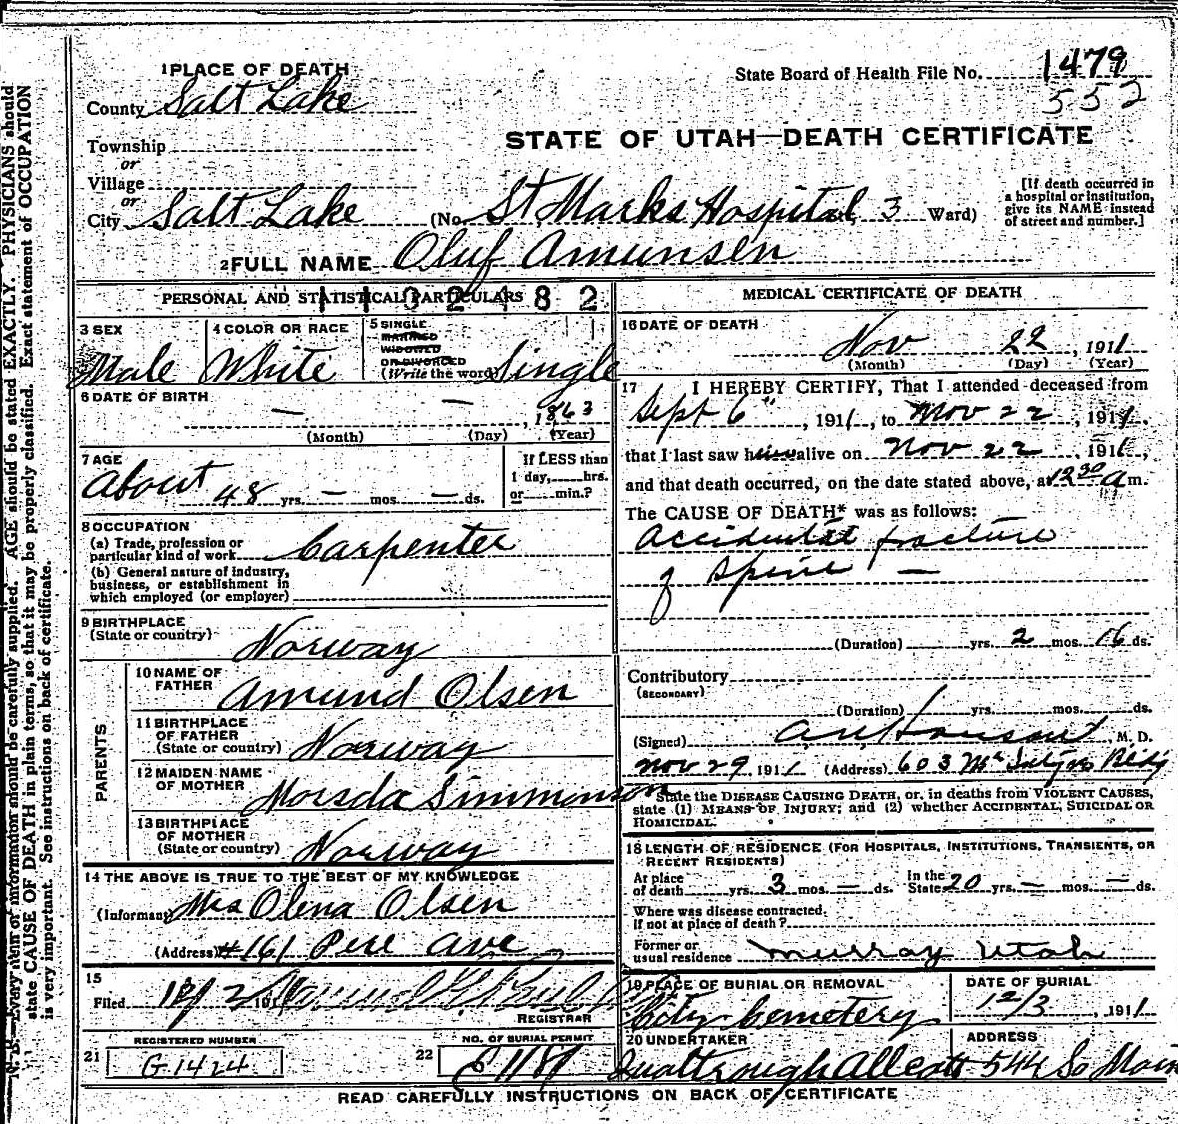 1 PLACE OF DEATH
State Board of Health File No. 1479
552
County Salt Lake
STATE OF UTAH—DEATH CERTIFICATE
Township
or
Village
or
City Salt Lake (No. St Marks Hospital, 3 Ward)
[If death occurred in a hospital or institution, give its NAME instead of street and number.]
2 FULL NAME Oluf Amunsen
PERSONAL AND STATISTICAL PARTICULARS
1102482
3 SEX
Male
4 COLOR OR RACE
White
5 SINGLE
MARRIED
WIDOWED
OR DIVORCED
(Write the word) Single
6 DATE OF BIRTH
— — , 1863
(Month) (Day) (Year)
7 AGE
About 48 yrs. — mos. — ds.
If LESS than
1 day, hrs.
or min.?
8 OCCUPATION
(a) Trade, profession or
particular kind of work Carpenter
(b) General nature of industry,
business, or establishment in
which employed (or employer)
9 BIRTHPLACE
(State or country)
Norway
PARENTS
10 NAME OF
FATHER
Amund Olsen
11 BIRTHPLACE
OF FATHER
(State or country) Norway
12 MAIDEN NAME
OF MOTHER
Simmonson
13 BIRTHPLACE
OF MOTHER
(State or country) Norway
14 THE ABOVE IS TRUE TO THE BEST OF MY KNOWLEDGE
(Informant) Mrs Olena Olsen
(Address) #161 Ave
15
Filed 191
REGISTRAR
REGISTERED NUMBER
21 G1424
NO. OF BURIAL PERMIT
22
MEDICAL CERTIFICATE OF DEATH
16 DATE OF DEATH
Nov 22, 1911
(Month) (Day) (Year)
17 I HEREBY CERTIFY, That I attended deceased from
Sept 6", 1911, to Nov 22, 1911,
that I last saw him alive on Nov 22, 1911,
and that death occurred, on the date stated above, at 12 30 a m.
The CAUSE OF DEATH* was as follows:
Accidental fracture
of spine —
(Duration) yrs. 2 mos. 16 ds.
Contributory
(SECONDARY)
(Duration) yrs. mos. ds.
(Signed) M. D.
Nov 29, 1911 (Address) 603 Bldg
State the DISEASE CAUSING DEATH, or, in deaths from VIOLENT CAUSES,
state (1) MEANS OF INJURY; and (2) whether ACCIDENTAL, SUICIDAL OR
HOMICIDAL.
18 LENGTH OF RESIDENCE (FOR HOSPITALS, INSTITUTIONS, TRANSIENTS, OR
RECENT RESIDENTS)
At place
of death yrs. 3 mos. — ds.
In the
State 20 yrs. — mos. — ds.
Where was disease contracted,
If not at place of death?
Former or
usual residence Murray Utah
19 PLACE OF BURIAL OR REMOVAL
City Cemetery
DATE OF BURIAL
12/3, 1911
20 UNDERTAKER
ADDRESS
544 So Main
READ CAREFULLY INSTRUCTIONS ON BACK OF CERTIFICATE
N. B.—Every item of information should be carefully supplied. AGE should be stated EXACTLY. PHYSICIANS should
state CAUSE OF DEATH in plain terms, so that it may be properly classified. Exact statement of OCCUPATION
is very important. See instructions on back of certificate.